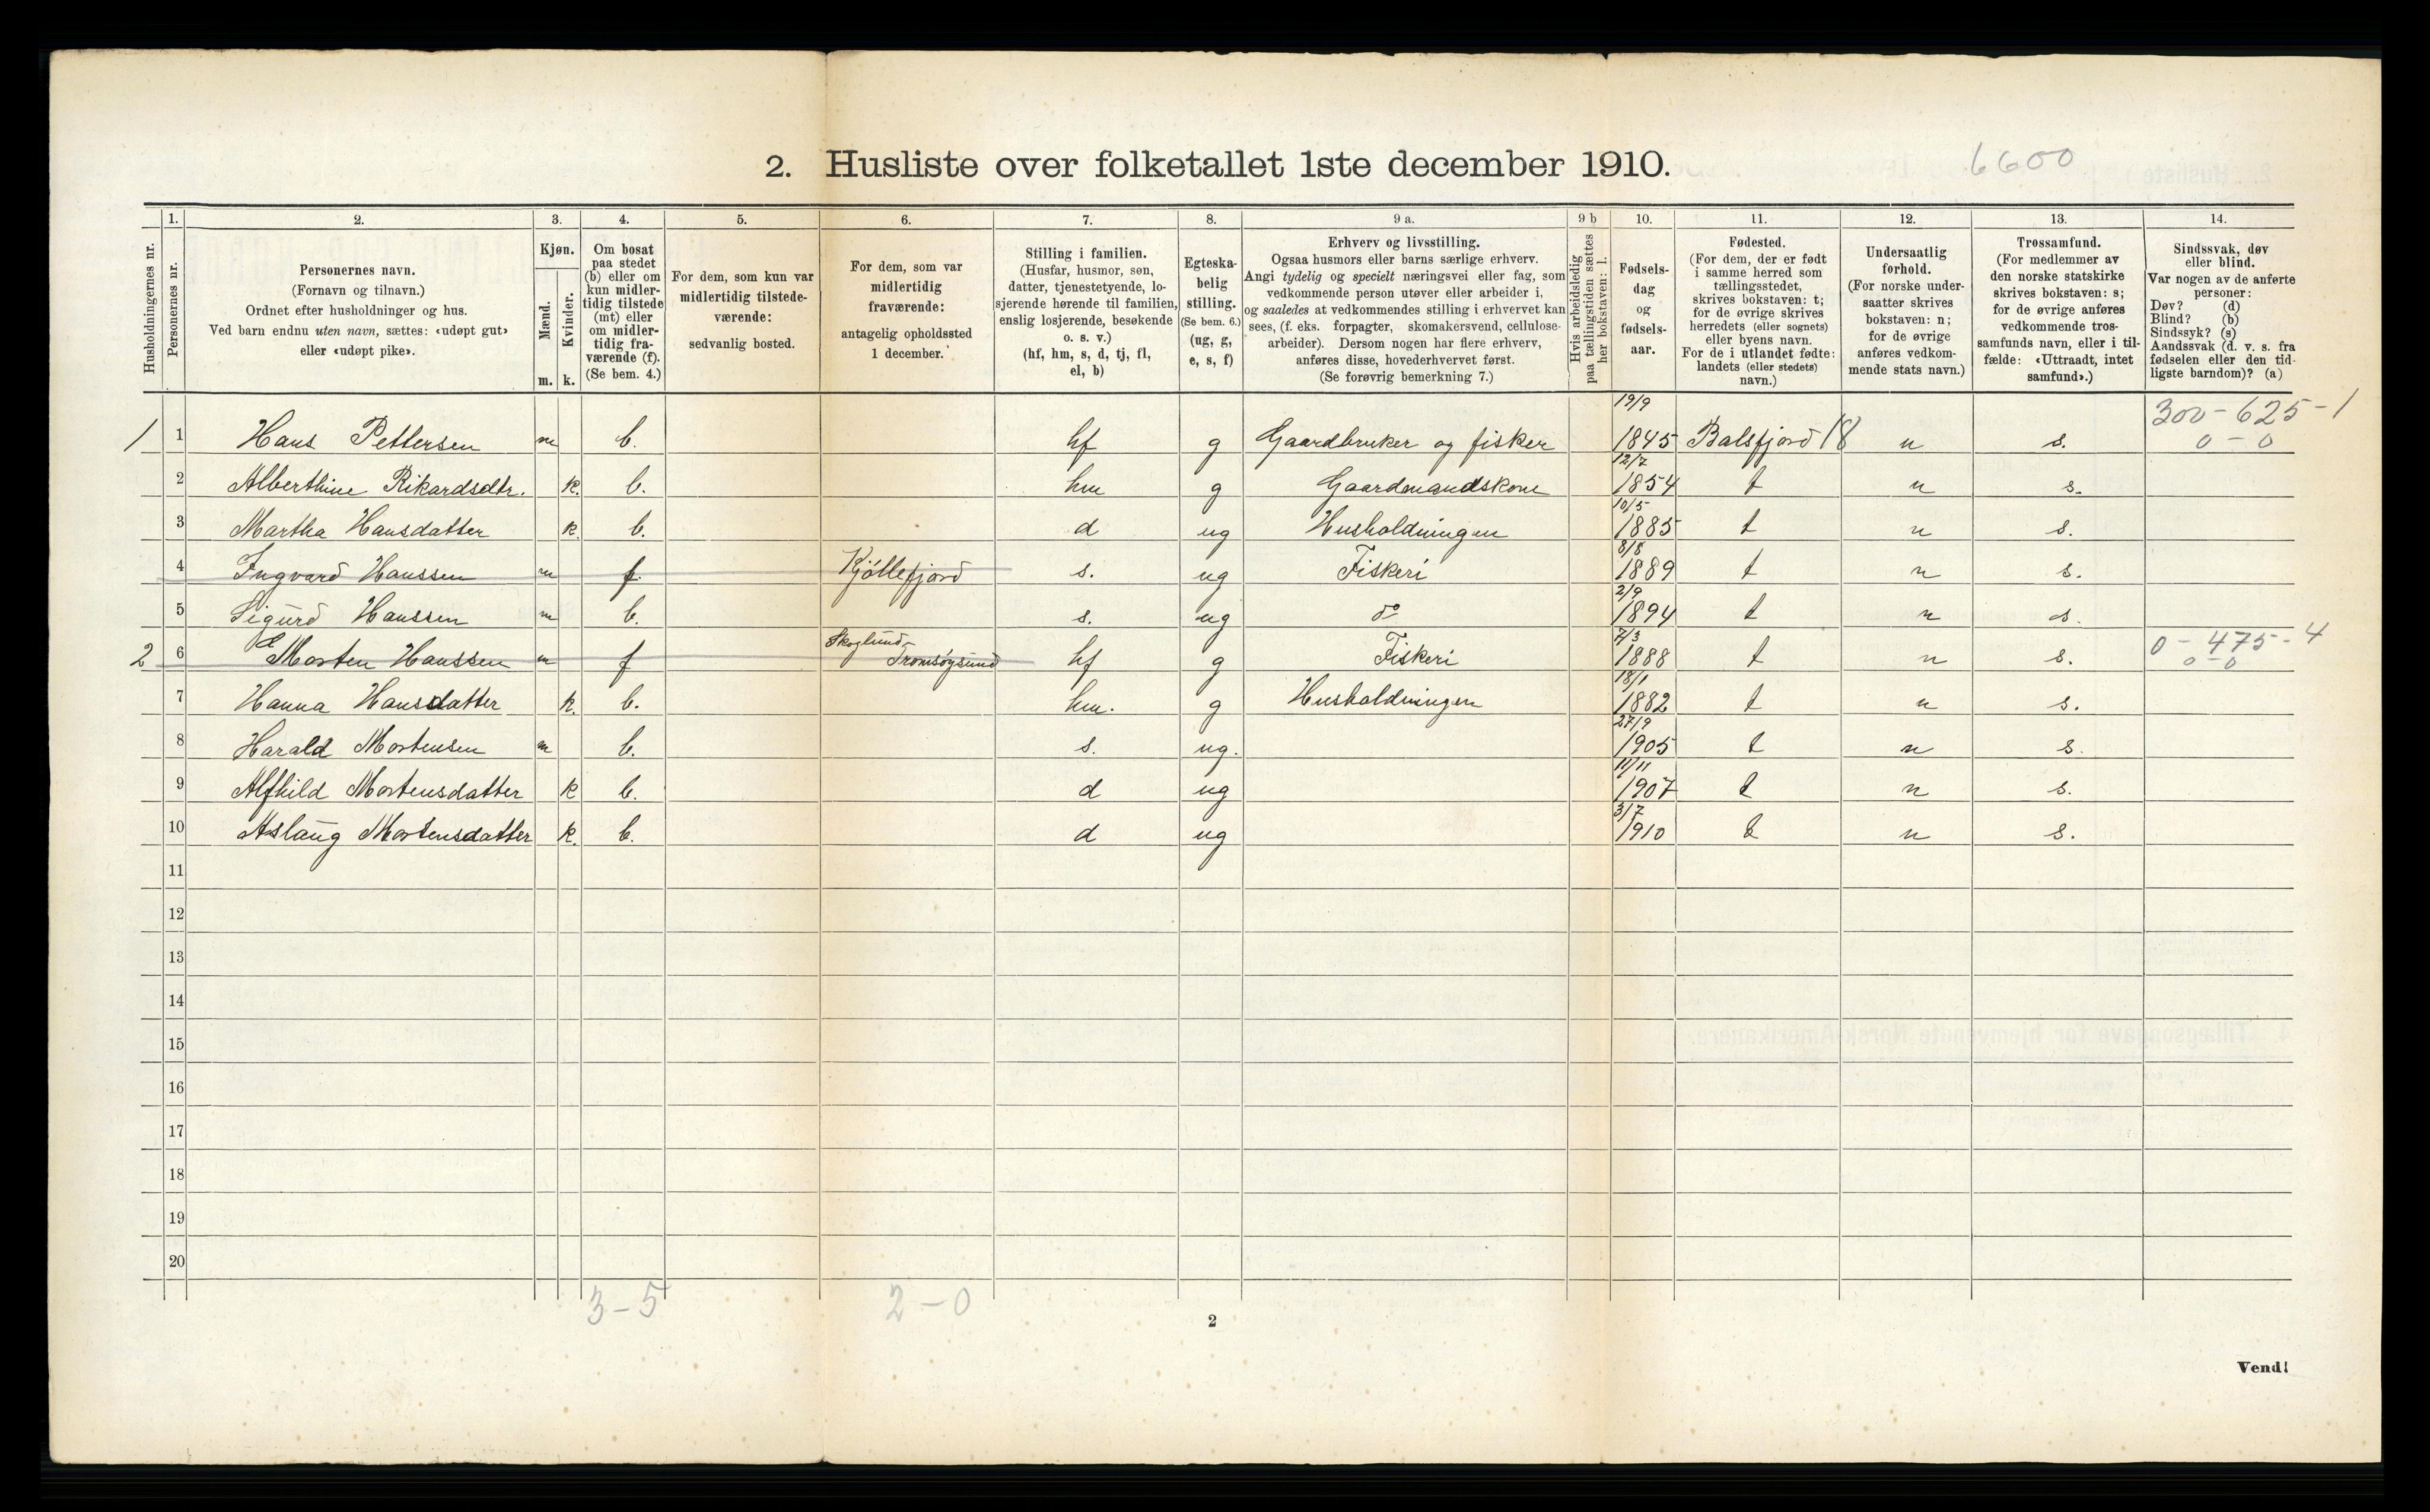 2. Husliste over folketallet 1ste december 1910.
6600
Husholdningernes nr.
1. Personernes nr.
2. Personernes navn.
(Fornavn og tilnavn.)
Ordnet efter husholdninger og hus.
Ved barn endnu uten navn, sættes: «udøpt gut»
eller «udøpt pike».
3. Kjøn.
Mænd. m.
Kvinder. k.
4. Om bosat
paa stedet
(b) eller om
kun midler-
tidig tilstede
(mt) eller
om midler-
tidig fra-
værende (f).
(Se bem. 4.)
5. For dem, som kun var
midlertidig tilstede-
værende:
sedvanlig bosted.
6. For dem, som var
midlertidig
fraværende:
antagelig opholdssted
1 december.
7. Stilling i familien.
(Husfar, husmor, søn,
datter, tjenestetyende, lo-
sjerende hørende til familien,
enslig losjerende, besøkende
o. s. v.)
(hf, hm, s, d, tj, fl,
el, b)
8. Egteska-
belig
stilling.
(Se bem. 6.)
(ug, g,
e, s, f)
9 a. Erhverv og livsstilling.
Ogsaa husmors eller barns særlige erhverv.
Angi tydelig og specielt næringsvei eller fag, som
vedkommende person utøver eller arbeider i,
og saaledes at vedkommendes stilling i erhvervet kan
sees, (f. eks. forpagter, skomakersvend, cellulose-
arbeider). Dersom nogen har flere erhverv,
anføres disse, hovederhvervet først.
(Se forøvrig bemerkning 7.)
9 b Hvis arbeidsledig
paa tællingstiden sættes
her bokstaven: l.
10. Fødsels-
dag
og
fødsels-
aar.
11. Fødested.
(For dem, der er født
i samme herred som
tællingsstedet,
skrives bokstaven: t;
for de øvrige skrives
herredets (eller sognets)
eller byens navn.
For de i utlandet fødte:
landets (eller stedets)
navn.)
12. Undersaatlig
forhold.
(For norske under-
saatter skrives
bokstaven: n;
for de øvrige
anføres vedkom-
mende stats navn.)
13. Trossamfund.
(For medlemmer av
den norske statskirke
skrives bokstaven: s;
for de øvrige anføres
vedkommende tros-
samfunds navn, eller i til-
fælde: «Uttraadt, intet
samfund».)
14. Sindssvak, døv
eller blind.
Var nogen av de anførte
personer:
Døv? (d)
Blind? (b)
Sindssyk? (s)
Aandssvak (d. v. s. fra
fødselen eller den tid-
ligste barndom)? (a)
1 1 Hans Pettersen m b. hf g Gaardbruker og fisker 19/9 1845 Balsfjord 18 n s. 300-625-1 0-0
2 Alberthine Rikardsdtr. k. b. hm g Gaardmandskone 12/7 1854 t n s.
3 Martha Hansdatter k. b. d ug Husholdningen 10/5 1885 t n s.
4 Ingvard Hanssen m f. Kjöllefjord s. ug Fiskeri 8/8 1889 t n s.
5 Sigurd Hanssen m b. s. ug do 2/9 1894 t n s.
2 6 Morten Hanssen m f Skoglund- Tromsøysund hf g Fiskeri 7/3 1888 t n s. 0-475-4 0-0
7 Hanna Hansdatter k. b. hm. g Husholdningen 18/1 1882 t n s.
8 Harald Mortensen m b. s. ug. 27/9 1905 t n s.
9 Alfhild Mortensdatter k b. d ug 11/11 1907 t n s.
10 Aslaug Mortensdatter k. b. d ug 3/7 1910 t n s.
11
12
13
14
15
16
17
18
19
20
3-5 2-0
2
Vend!